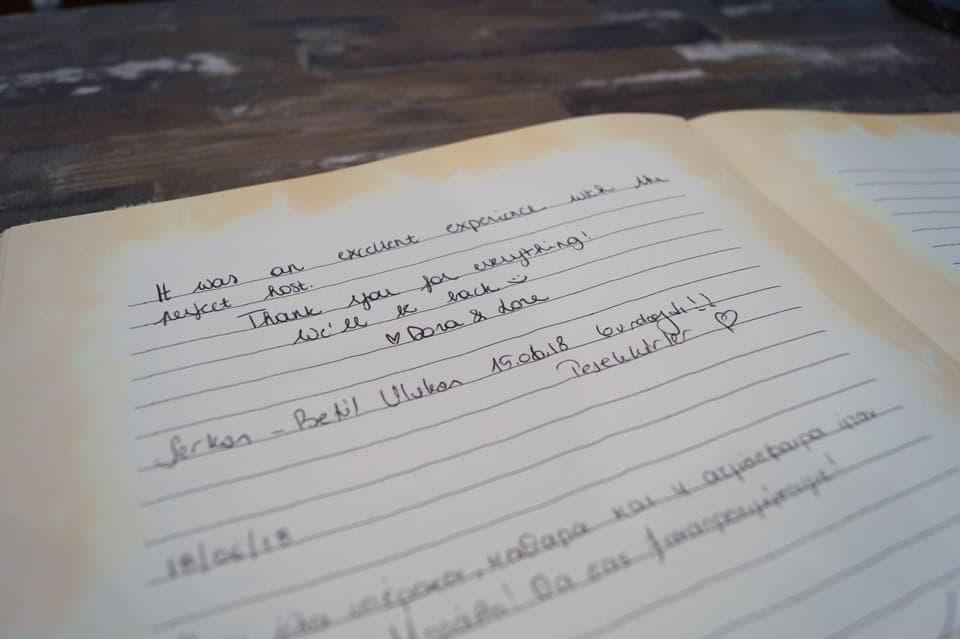 It was an excellent experience with the
perfect host.
Thank you for everything!
We'll be back
♡ Dora & Lore
Serkan - Betül Ulukan 15.06.18 burdaydı!!
Teşekkürler ♡
18/06/18
όλα υπέροχα, καθαρά και η ατμόσφαιρα
Θα σας ξαναπροτιμήσουμε!